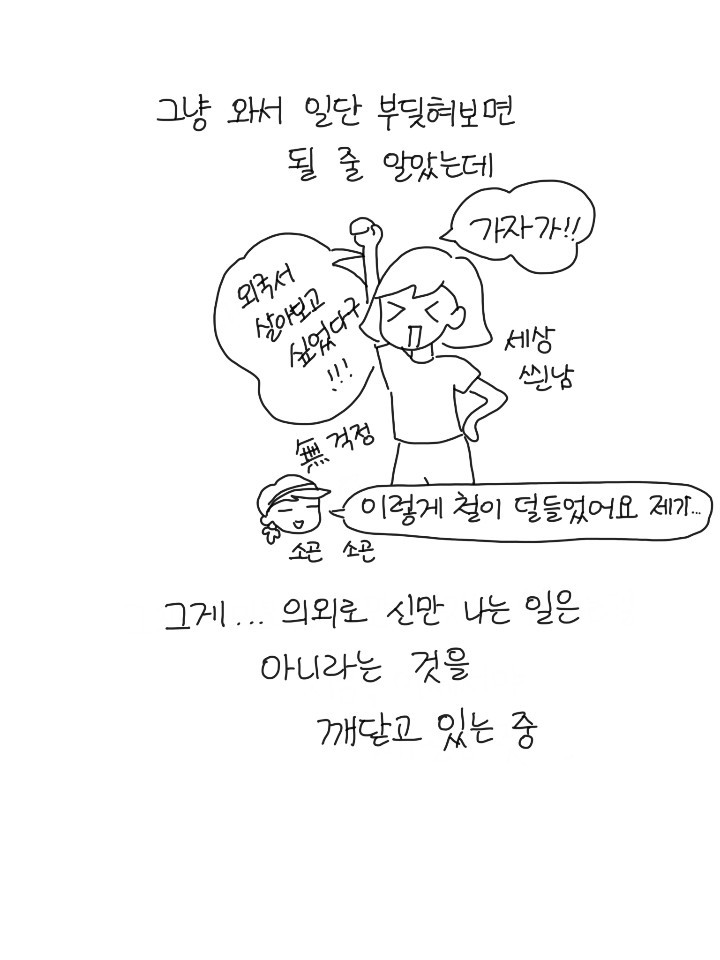 그냥 와서 일단 부딪혀보면
될 줄 알았는데
가자가!!
외국서
살아보고
싶었다구
!!!
세상
씐남
無 걱정
이렇게 철이 덜들었어요 제가...
소곤 소곤
그게... 의외로 신만 나는 일은
아니라는 것을
깨닫고 있는 중